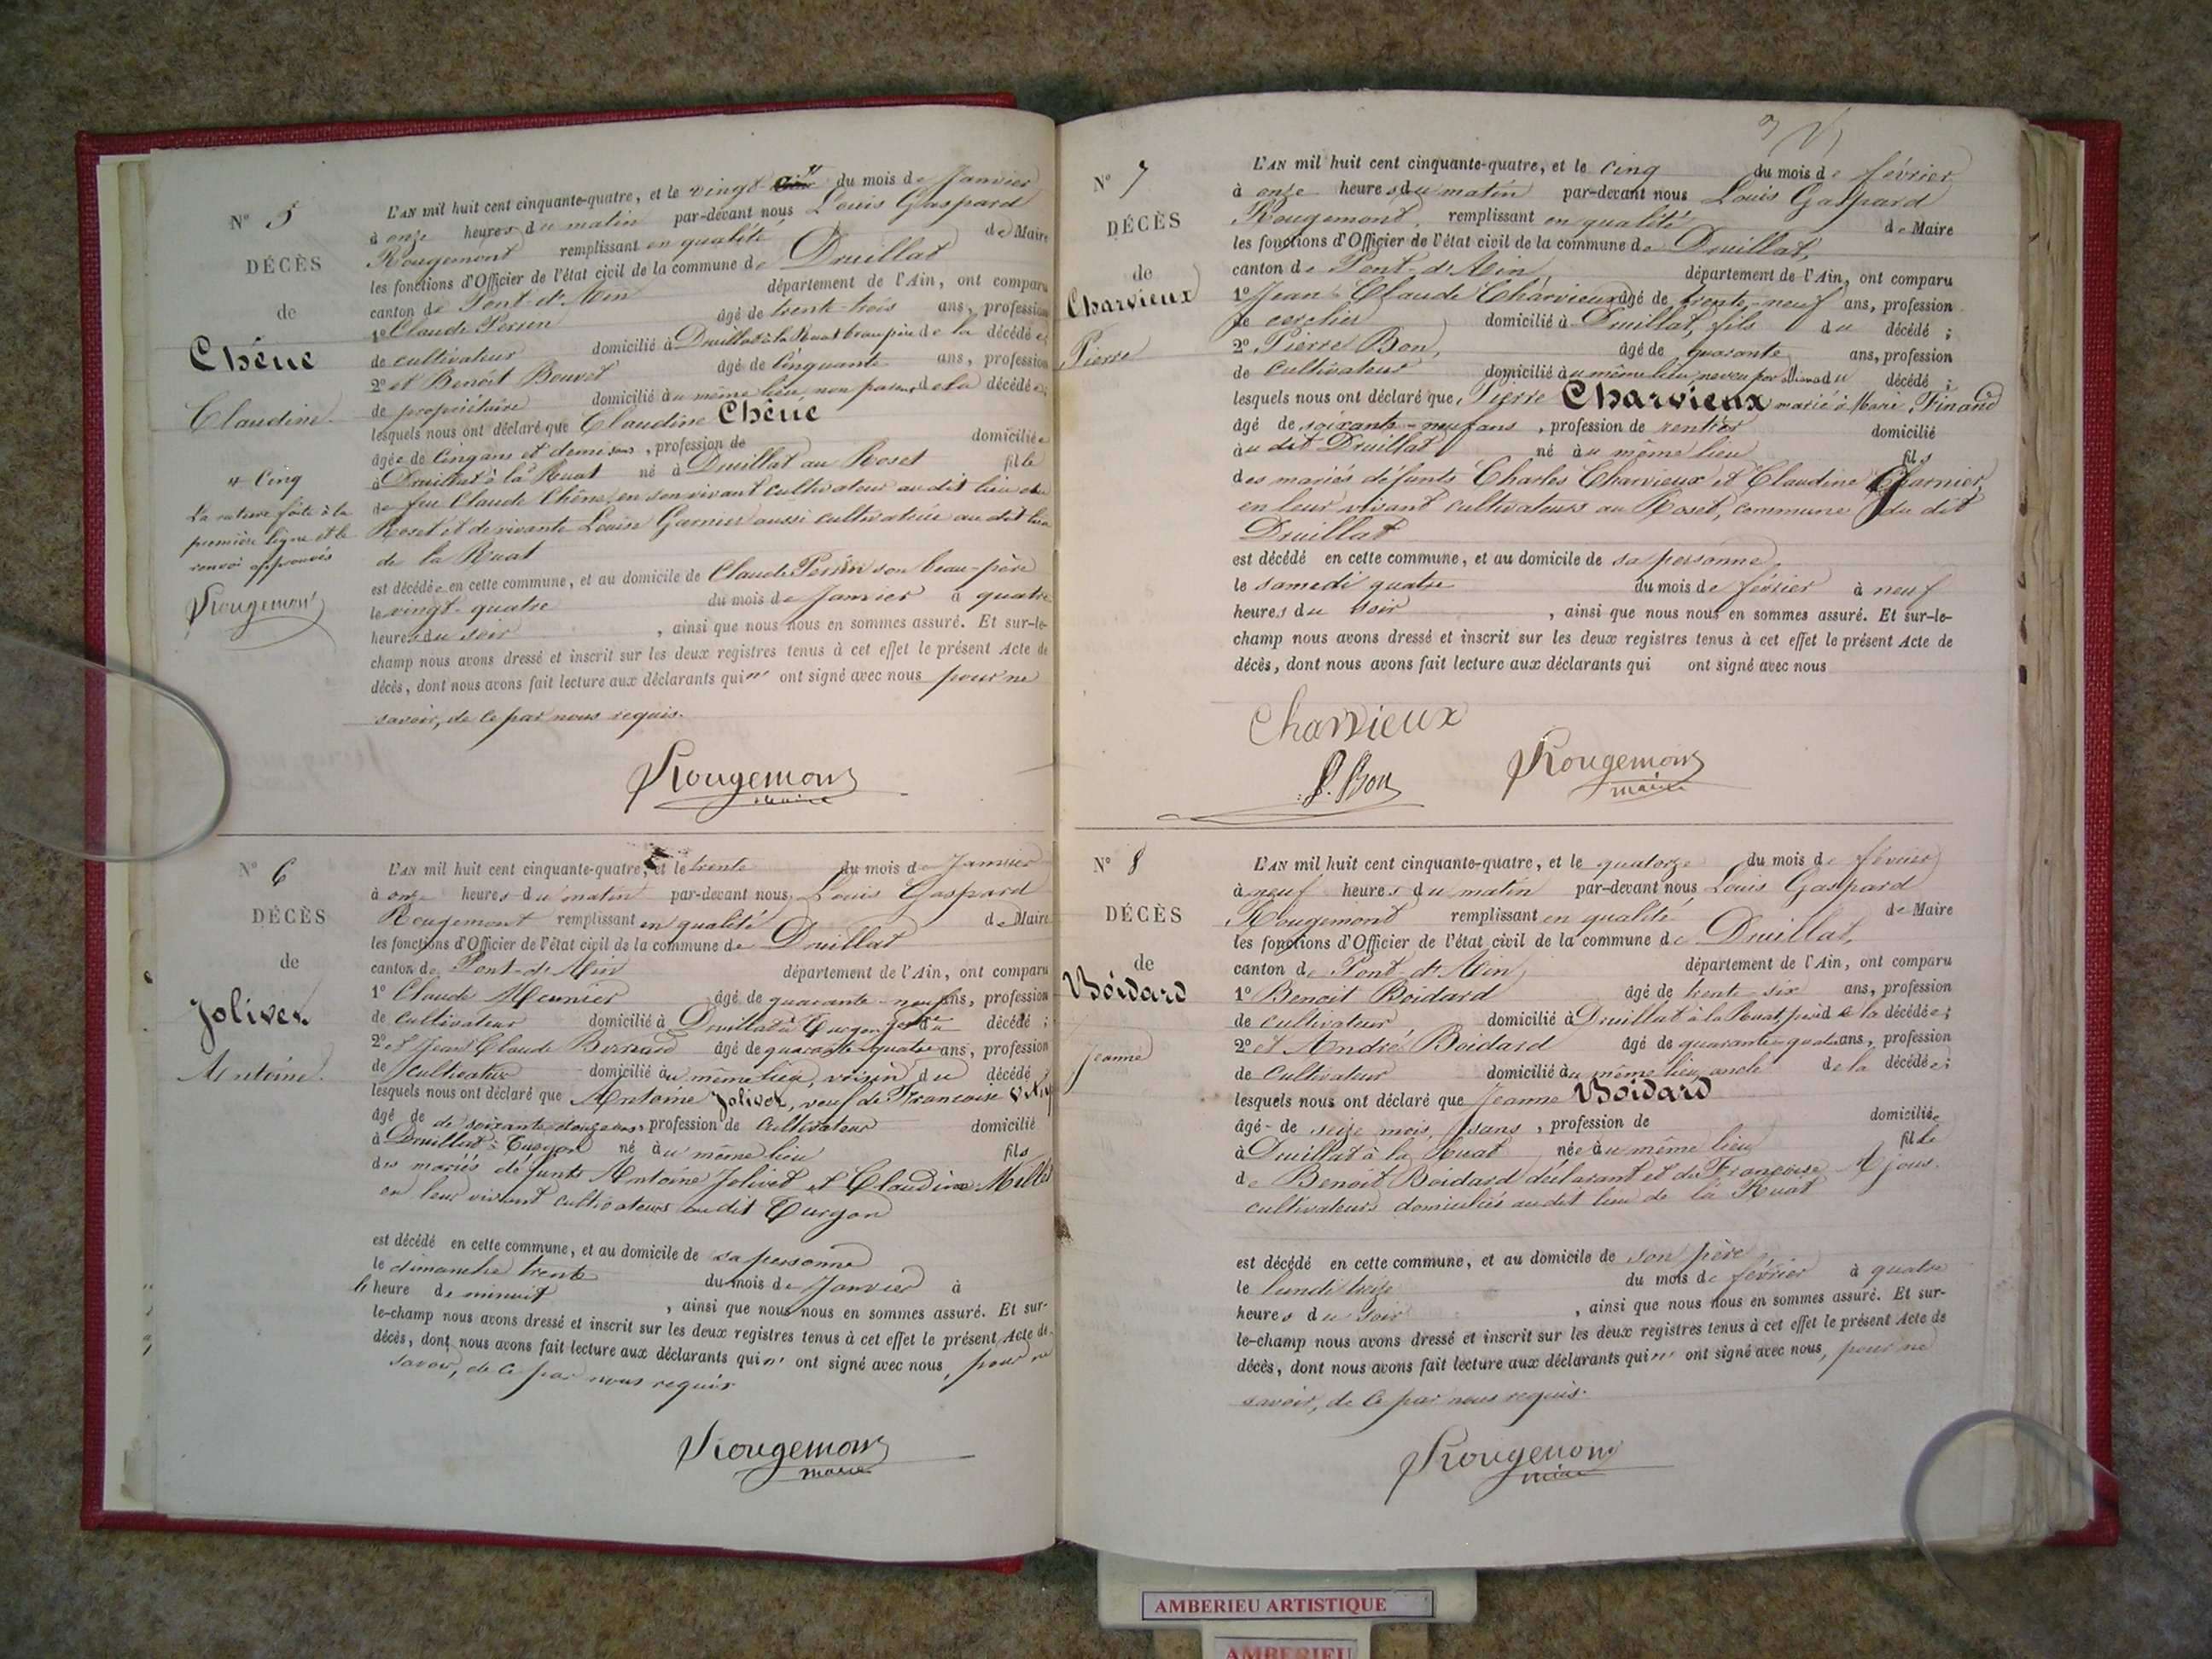 N° 5
DÉCÈS
de
Chêne
Claudine.
# Cinq
La rature faite à la
première ligne et le
renvoi approuvés
Rougemont
L'AN mil huit cent cinquante-quatre, et le vingt # du mois de Janvier
à onze heures du matin par-devant nous Louis Gaspard
Rougemont remplissant en qualité de Maire
les fonctions d'Officier de l'état civil de la commune de Druillat
canton de Pont-d'Ain département de l'Ain, ont comparu
1° Claude Perrin âgé de trente-trois ans, profession
de cultivateur domicilié à Druillat à la Ruat beau père de la décédée;
2° et Benoit Bouvet âgé de Cinquante ans, profession
de propriétaire domicilié au même lieu, non parent de la décédée;
lesquels nous ont déclaré que Claudine Chêne
âgée de Cinq ans et demi ans, profession de domiciliée
à Druillat à la Ruat né à Druillat au Roset fille
de feu Claude Chêne, en son vivant cultivateur au dit lieu du
Roset et de vivante Louise Garnier aussi cultivatrice au dit lieu
de la Ruat
est décédée en cette commune, et au domicile de Claude Perrin son beau-père
le vingt-quatre du mois de Janvier à quatre
heures du soir, ainsi que nous nous en sommes assuré. Et sur-le-
champ nous avons dressé et inscrit sur les deux registres tenus à cet effet le présent Acte de
décès, dont nous avons fait lecture aux déclarants qui n' ont signé avec nous pour ne
savoir, de ce par nous requis.
Rougemont
maire
N° 6
DÉCÈS
de
Jolivet
Antoine.
L'AN mil huit cent cinquante-quatre, et le trente du mois de Janvier
à onze heures du matin par-devant nous, Louis Gaspard
Rougemont remplissant en qualité de Maire
les fonctions d'Officier de l'état civil de la commune de Druillat
canton de Pont-d'Ain département de l'Ain, ont comparu
1° Claude Meunier âgé de quarante-neuf ans, profession
de cultivateur domicilié à Druillat à Turgon, du décédé;
2° et Jean Claude Bernard âgé de quarante-quatre ans, profession
de cultivateur domicilié au même lieu, voisin du décédé;
lesquels nous ont déclaré que Antoine Jolivet, veuf de Françoise
âgé de de soixante-douze ans, profession de Cultivateur domicilié
à Druillat à Turgon né au même lieu fils
des mariés défunts Antoine Jolivet et Claudine Millet
en leur vivant cultivateurs au dit Turgon
est décédé en cette commune, et au domicile de sa personne
le dimanche trente du mois de Janvier à
heure de minuit, ainsi que nous nous en sommes assuré. Et sur-
le-champ nous avons dressé et inscrit sur les deux registres tenus à cet effet le présent Acte de
décès, dont nous avons fait lecture aux déclarants qui n' ont signé avec nous, pour ne
savoir, de ce par nous requis
Rougemont
maire
N° 7
DÉCÈS
de
Charvieux
Pierre
L'AN mil huit cent cinquante-quatre, et le cinq du mois de février
à onze heures du matin par-devant nous Louis Gaspard
Rougemont, remplissant en qualité de Maire
les fonctions d'Officier de l'état civil de la commune de Druillat,
canton de Pont-d'Ain, département de l'Ain, ont comparu
1° Jean-Claude Charvieux âgé de trente-neuf ans, profession
de cerclier domicilié à Druillat, fils du décédé;
2° Pierre Bon, âgé de quarante ans, profession
de cultivateur domicilié au même lieu, neveu par alliance du décédé;
lesquels nous ont déclaré que Pierre Charvieux marié à Marie Finand
âgé de soixante-neuf ans, profession de rentier domicilié
au dit Druillat né au même lieu fils
des mariés défunts Charles Charvieux et Claudine Garnier,
en leur vivant cultivateurs au Roset, commune du dit
Druillat
est décédé en cette commune, et au domicile de sa personne,
le samedi quatre du mois de février à neuf
heures du soir, ainsi que nous nous en sommes assuré. Et sur-le-
champ nous avons dressé et inscrit sur les deux registres tenus à cet effet le présent Acte de
décès, dont nous avons fait lecture aux déclarants qui ont signé avec nous
Charvieux
P. Bon
Rougemont
maire
N° 8
DÉCÈS
de
Boidard
Jeanne
L'AN mil huit cent cinquante-quatre, et le quatorze du mois de février
à neuf heures du matin par-devant nous Louis Gaspard
Rougemont remplissant en qualité de Maire
les fonctions d'Officier de l'état civil de la commune de Druillat,
canton de Pont-d'Ain, département de l'Ain, ont comparu
1° Benoit Boidard âgé de trente-six ans, profession
de cultivateur domicilié à Druillat à la Ruat, père de la décédée;
2° et André Boidard âgé de quarante-quatre ans, profession
de cultivateur domicilié au même lieu, oncle de la décédée;
lesquels nous ont déclaré que Jeanne Boidard
âgée de seize mois, ans, profession de domiciliée
à Druillat à la Ruat née au même lieu fille
de Benoit Boidard déclarant et de Françoise Ajoux.
cultivateurs domiciliés au dit lieu de la Ruat
est décédé en cette commune, et au domicile de son père,
le lundi treize du mois de février à quatre
heures du soir, ainsi que nous nous en sommes assuré. Et sur-
le-champ nous avons dressé et inscrit sur les deux registres tenus à cet effet le présent Acte de
décès, dont nous avons fait lecture aux déclarants qui n' ont signé avec nous, pour ne
savoir, de ce par nous requis.
Rougemont
maire
AMBERIEU ARTISTIQUE
AMBERIEU